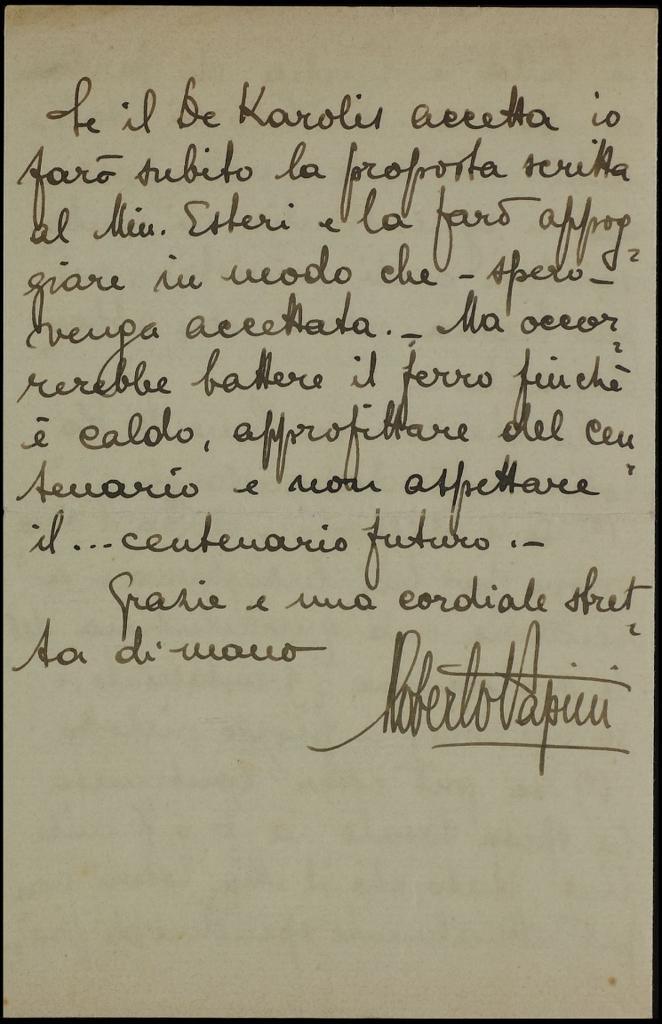 Se il De Karolis accetta io
farò subito la proposta scritta
al Min. Esteri e la farò appog=
giare in modo che - spero -
venga accettata. - Ma occor=
rerebbe battere il ferro finchè
è caldo, approfittare del cen=
tenario e non aspettare
il... centenario futuro. -
Grazie e una cordiale stret=
ta di mano
Roberto Papini